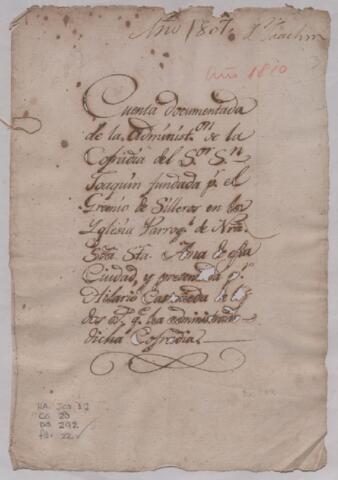 Año 1807. Sn Joachin
Año 1810
Cuenta documentada
de la administ.on de la
Cofradia del S.or S.n
Joaquin fundada p.r el
Gremio de Silleros en la
Yglesia Parroq.l de Nra
Sra. Sta. Ana de esta
Ciudad, y presentada p.r
Hilario Castañeda de los
dos q.e ha administrado
dicha Cofradia.
CO. 20
DO 292
fo. 22